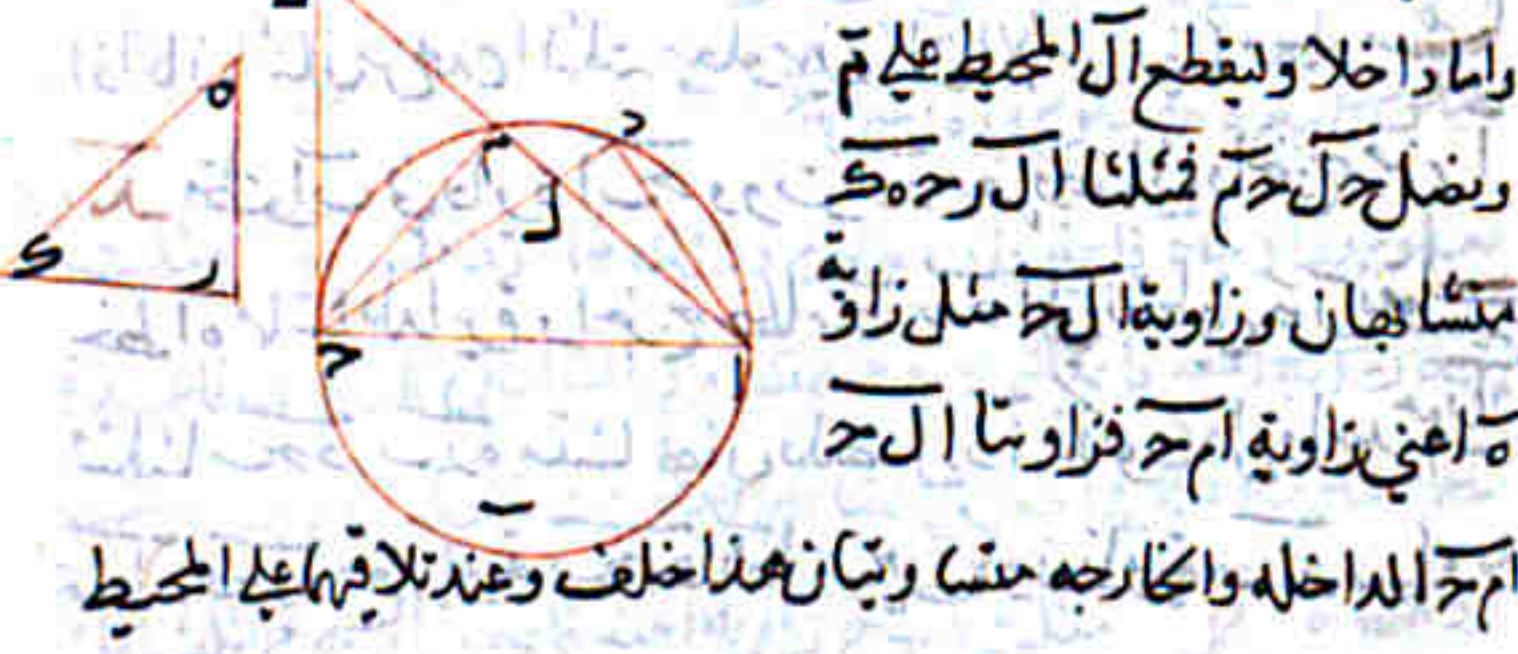 واما داخلا وليقطع ال المحيط علي م
ونصل حل حم فمثلثا ال حر ه ك
متشابهان وزاوية ال ح مثل زاوية
ه اعني زاوية ام ح فزاويتا ال ح
ام ح الداخله والخارجه متساويتان هذا خلف وعند تلاقيهما علي المحيط
ه
ك
ر
م
د
ل
ح
ا
ب